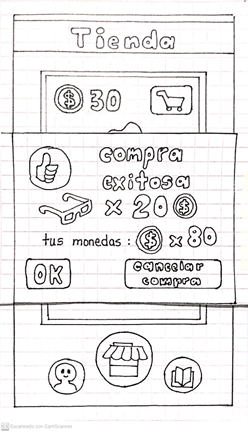 Tienda
$ 30
compra
exitosa
x 20 $
tus monedas : $ x 80
OK
cancelar
compra
CS Escaneado con CamScanner